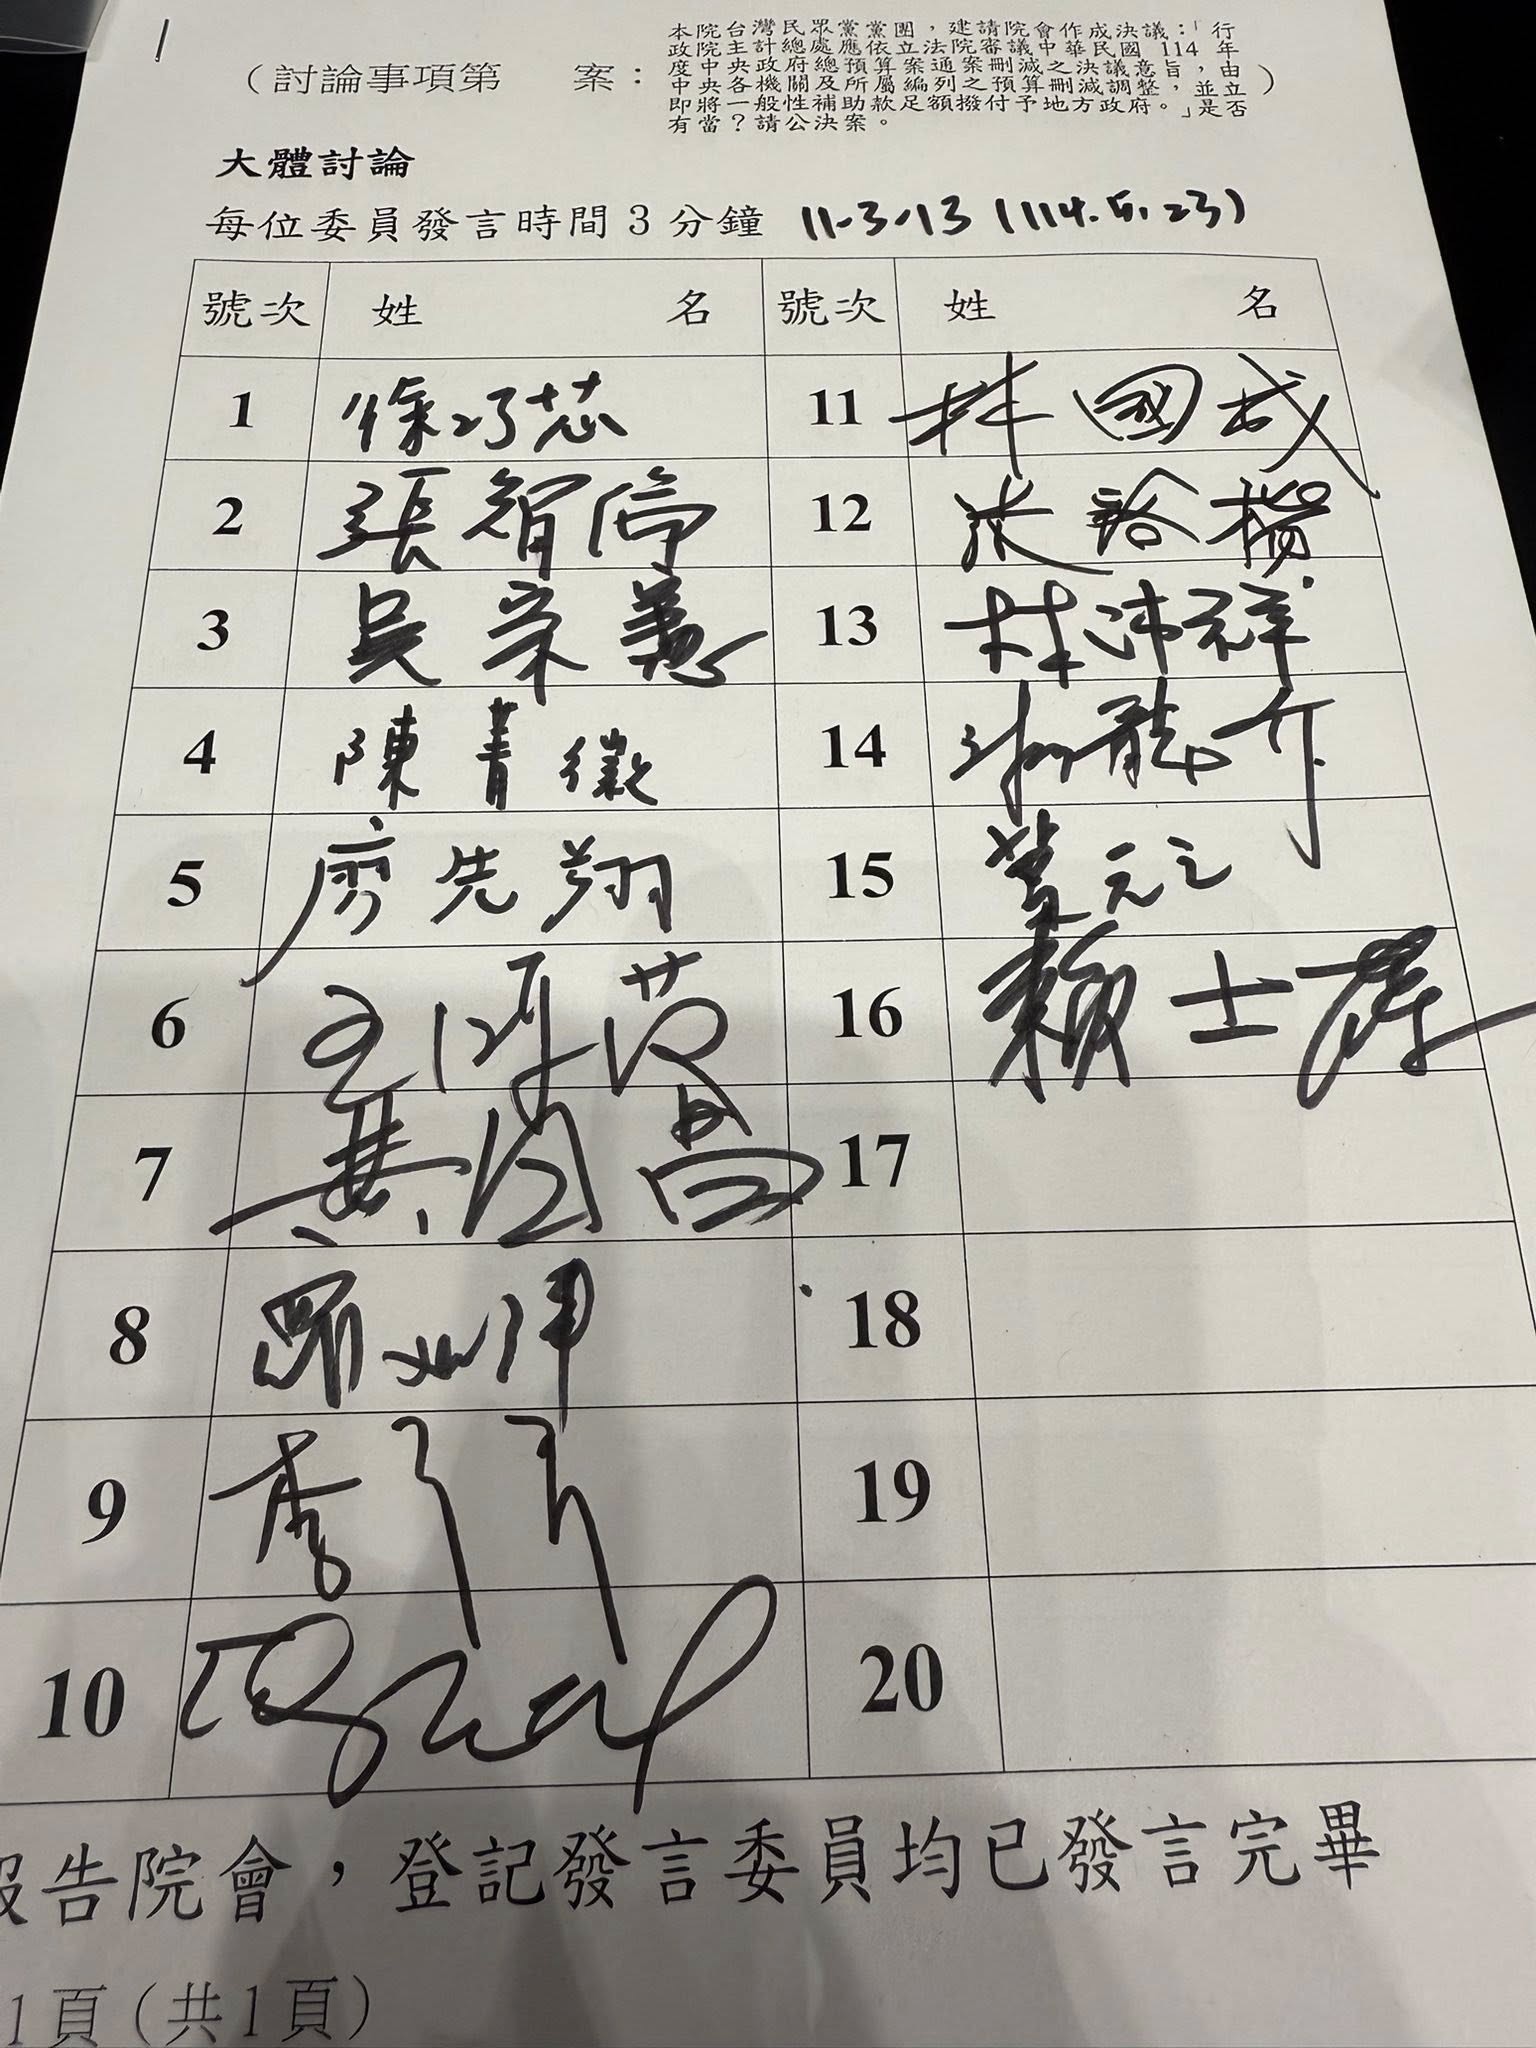 本院台灣民眾黨黨團，建請院會作成決議：「行
政院主計總處應依立法院審議中華民國 114 年
度中央政府總預算案通案刪減之決議意旨，由
中央各機關及所屬編列之預算刪減調整，並立
即將一般性補助款足額撥付予地方政府。」是否
有當？請公決案。
（討論事項第　案：　）
大體討論
每位委員發言時間3分鐘 11-3-13 (114.5.23)
號次 姓 名 號次 姓 名
1 徐巧芯 11 林國成
2 張智倫 12 洪毓祥
3 吳宗憲 13 林沛祥
4 陳菁徽 14 謝龍介
5 廖先翔 15 葉元之
6 王鴻薇 16 賴士葆
7 黃國昌 17
8 羅廷瑋 18
9 李 19
10 20
報告院會，登記發言委員均已發言完畢
1頁（共1頁）